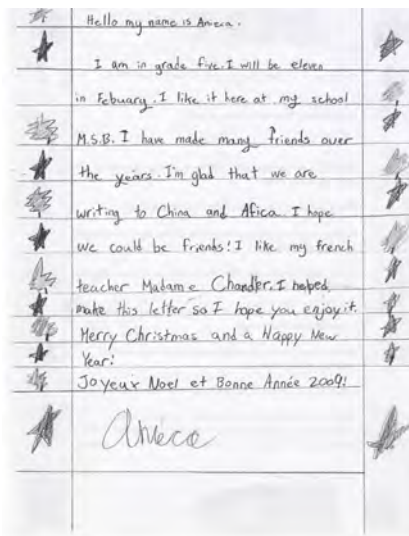 Hello my name is Anieca.
I am in grade five. I will be eleven
in Febuary. I like it here at my school
M.S.B. I have made many friends over
the years. I'm glad that we are
writing to China and Africa. I hope
we could be friends! I like my french
teacher Madame Chandler. I helped
make this letter so I hope you enjoy it.
Merry Christmas and a Happy New
Year!
Joyeux Noel et Bonne Année 2009!
Anieca